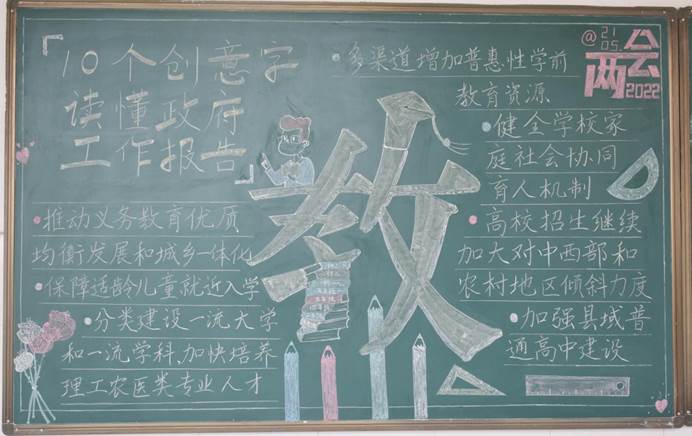 「10个创意字
读懂政府
工作报告」
·推动义务教育优质
均衡发展和城乡一体化
·保障适龄儿童就近入学
·分类建设一流大学
和一流学科,加快培养
理工农医类专业人才
教
·多渠道增加普惠性学前
教育资源
·健全学校家
庭社会协同
育人机制
·高校招生继续
加大对中西部和
农村地区倾斜力度
·加强县域普
通高中建设
@21
05.
两会
2022